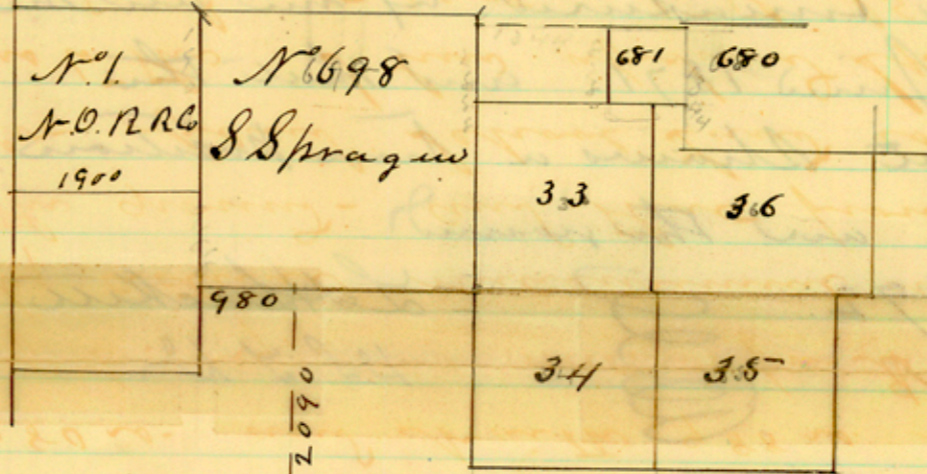 No 1.
N.O.R R Co
1900
No 698
S Sprague
681
680
33
36
980
2090
34
35